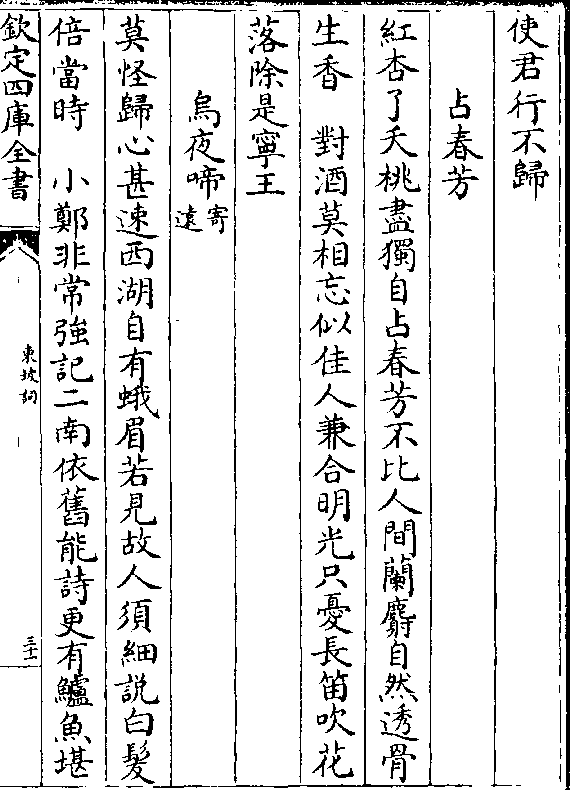 使君行不歸
占春芳
紅杏了夭桃盡獨自占春芳不比人間蘭麝自然透骨
生香　對酒莫相忘似佳人兼合明光只憂長笛吹花
落除是寧王
烏夜啼寄遠
莫怪歸心甚速西湖自有蛾眉若見故人須細說白髮
倍當時　小鄭非常強記二南依舊能詩更有鱸魚堪
欽定四庫全書
東坡詞
三十一